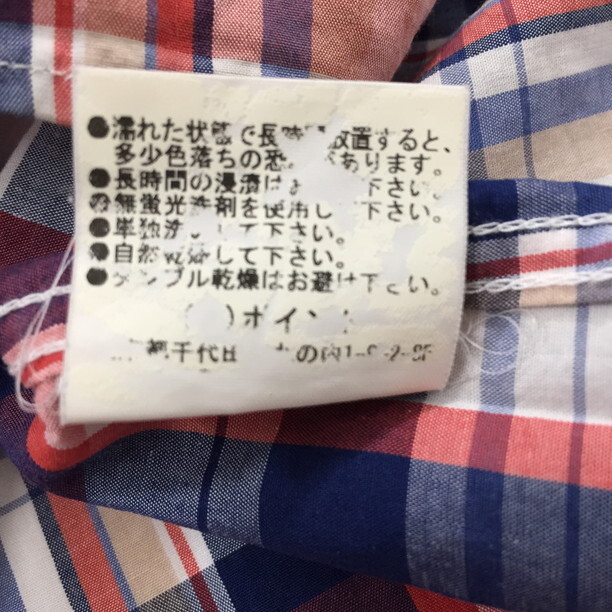 ●濡れた状態で長時 放置すると、
多少色落ちの恐 があります。
●長時間の浸漬は 下さい。
●無蛍光洗剤を使用し 下さい。
●単独洗 して下さい。
●自然乾燥して下さい。
●タンブル乾燥はお避け下さい。
ポイン
千代田 の内1-9-2-8F